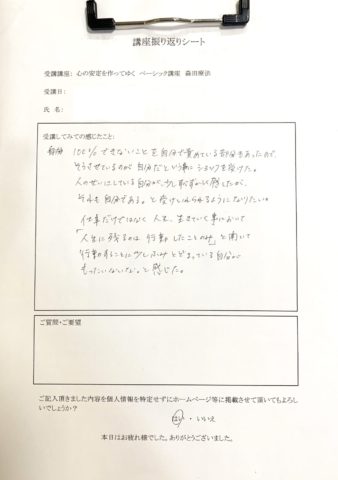 講座振り返りシート
受講講座： 心の安定を作ってゆく ベーシック講座 森田療法
受講日：
氏 名：
受講してみての感じたこと：
自分 100％できないことを自分で責めている部分もあったので、
そうさせているのが自分だという事にショックを受けた。
人のせいにしている自分が、少し恥ずかしく感じたから、
それも自分である。と受けいれられるようになりたい。
仕事だけではなく 人生、生きていく事において
「人生に残るのは 行動 したことのみ」と聞いて
行動することに少しふみとどまっている自分が
もったいないな。と感じた。
ご質問・ご要望
ご記入頂きました内容を個人情報を特定せずにホームページ等に掲載させて頂いてもよろし
いでしょうか？
はい ・ いいえ
本日はお疲れ様でした。ありがとうございました。